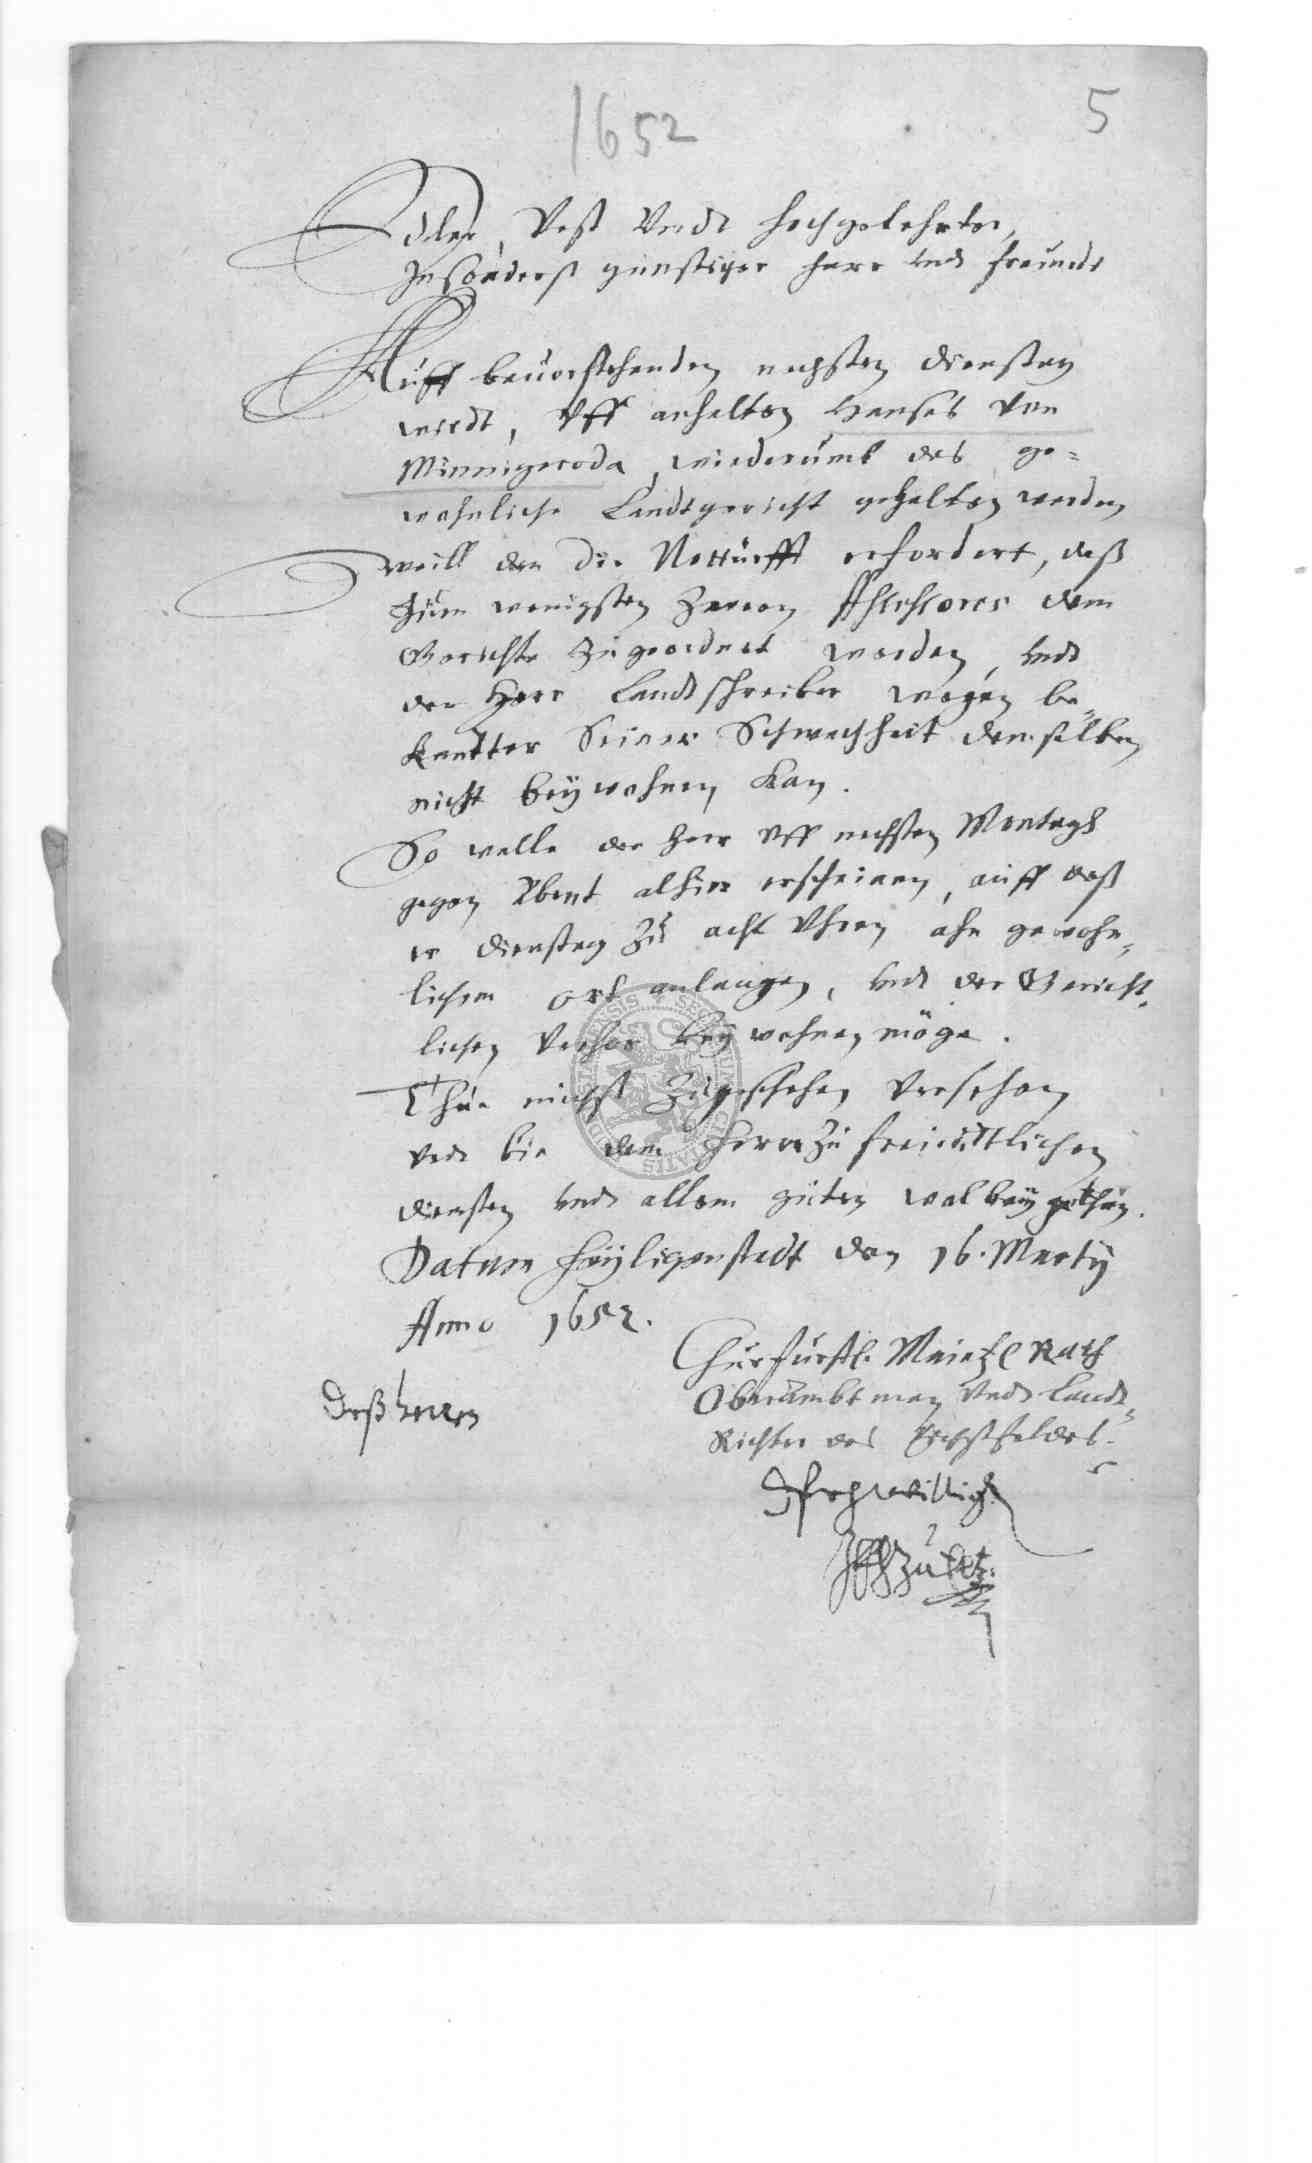 1652
5
Edler, Vest Vndt hochgelehrter,
Insonderß günstiger herr vnd freundt
Auff beuorstehenden nechsten dienstag
wirdt, Vff anhalten Hanses von
Minnigeroda, wiederumb das ge=
wohnliche Landtgericht gehalten werden
weill dan die Notturfft erfordert, daß
Zum wenigsten Zween Assessores dem
Gerichte zugeordnet werden, vndt
der Herr Landtschreiber wegen be=
kantter Seiner Schwachheit demselben
nicht beywohnen kan.
So wolle der Herr Vff nechsten Montagh
gegen Abent alhier erscheinen, auff daß
er dienstag zu acht Vhren ahn gewohn=
lichem ort anlangen, vnd der Gericht=
lichen Verhör beywohnen möge.
Thue michs Zugeschehen Versehen
vndt bin dem Herrn zu freündtlichen
diensten vndt allem guten wol beygethan.
Datum Heyligenstadt den 16. Marty
Anno 1652.
Churfürstl. Maintz. Rath
Oberambtman Vndt Landt=
Richter des Eichsfeldes.
Deß Herren
dienstwilliger